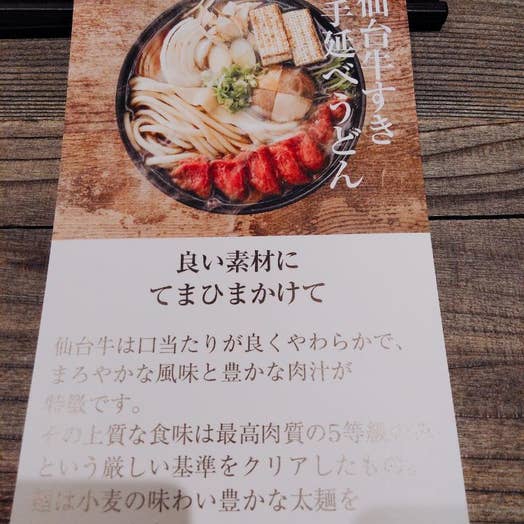 仙台牛すき
手延べうどん
良い素材に
てまひまかけて
仙台牛は口当たりが良くやわらかで、
まろやかな風味と豊かな肉汁が
特徴です。
その上質な食味は最高肉質の5等級のみ
という厳しい基準をクリアしたもの。
麺は小麦の味わい豊かな太麺を